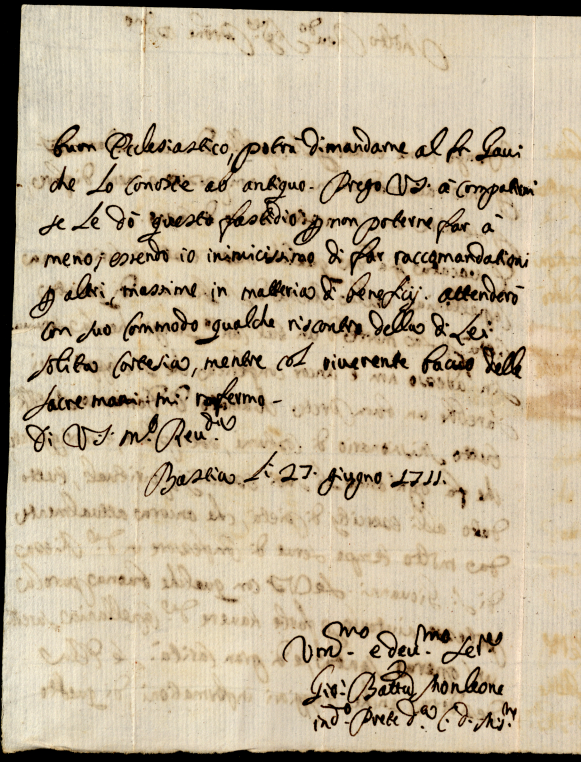 buon Ecclesiastico, potrà dimandarne al fr. Gavi
che Lo conosce ab antiquo. Prego VS. à compatirmi
se Le dò questo fastidio p non poterne far à
meno, essendo io inimicissimo di far raccomandationi
p altri, massime in materia di beneficij. attenderò
con suo commodo qualche riscontro della di Lei
solita cortesia, mentre col riverente bacio delle
sacre mani mi raffermo -
Di VS. m.o Reu.da
Bastia Li 27. giugno 1711.
Vm.mo e deu.mo Ser.re
Gio: Batta Monleone
ind.o Prete d.a C. d. Mis.